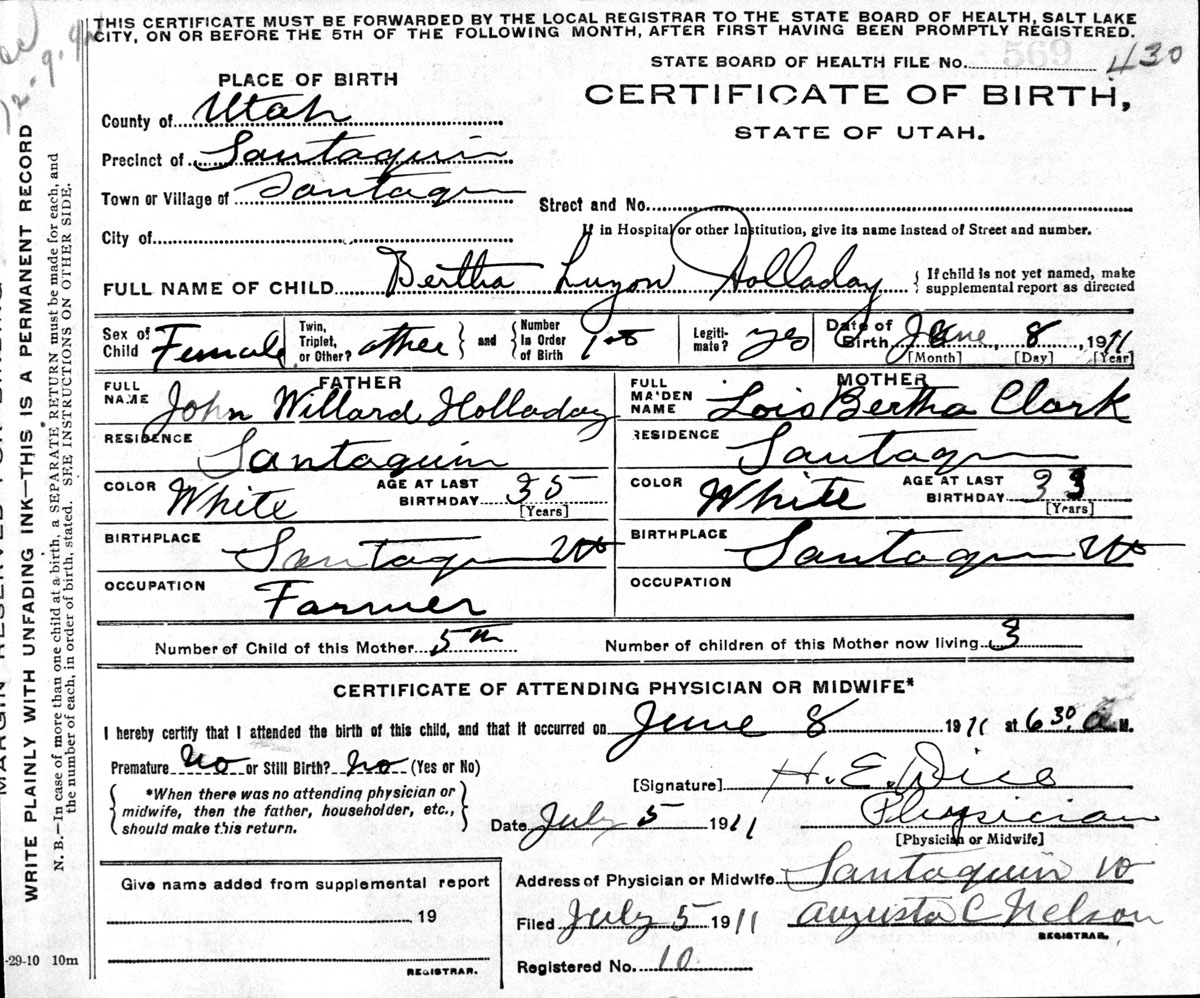 THIS CERTIFICATE MUST BE FORWARDED BY THE LOCAL REGISTRAR TO THE STATE BOARD OF HEALTH, SALT LAKE
CITY, ON OR BEFORE THE 5TH OF THE FOLLOWING MONTH, AFTER FIRST HAVING BEEN PROMPTLY REGISTERED.
569
STATE BOARD OF HEALTH FILE NO. 430
PLACE OF BIRTH
CERTIFICATE OF BIRTH,
STATE OF UTAH.
County of Utah
Precinct of Santaquin
Town or Village of Santaqn
Street and No.
City of
If in Hospital or other Institution, give its name instead of Street and number.
FULL NAME OF CHILD Bertha Luzon Holladay
{ If child is not yet named, make
supplemental report as directed
Sex of Child Female
Twin, Triplet, or Other? other } and { Number In Order of Birth 1st
Legitimate? yes
Date of Birth June, 8, 1911
[Month] [Day] [Year]
FATHER
FULL NAME John Willard Holladay
RESIDENCE Santaquin
COLOR White AGE AT LAST BIRTHDAY 35
[Years]
BIRTHPLACE Santaqn Ut
OCCUPATION Farmer
MOTHER
FULL MAIDEN NAME Lois Bertha Clark
RESIDENCE Santaqn
COLOR White AGE AT LAST BIRTHDAY 33
[Years]
BIRTHPLACE Santaqn Ut
OCCUPATION
Number of Child of this Mother 5th Number of children of this Mother now living 3
CERTIFICATE OF ATTENDING PHYSICIAN OR MIDWIFE*
I hereby certify that I attended the birth of this child, and that it occurred on June 8 1911 at 6 30, a M.
Premature No or Still Birth? No (Yes or No)
*When there was no attending physician or
midwife, then the father, householder, etc.,
should make this return.
[Signature] H. E. Dice
Date July 5 1911 Physician
[Physician or Midwife]
Address of Physician or Midwife Santaquin Ut
Filed July 5 1911 Augusta C Nelson
REGISTRAR.
Registered No. 10
Give name added from supplemental report
19
REGISTRAR.
-29-10 10m
WRITE PLAINLY WITH UNFADING INK—THIS IS A PERMANENT RECORD
N. B.—In case of more than one child at a birth, a SEPARATE RETURN must be made for each, and
the number of each, in order of birth, stated. SEE INSTRUCTIONS ON OTHER SIDE.